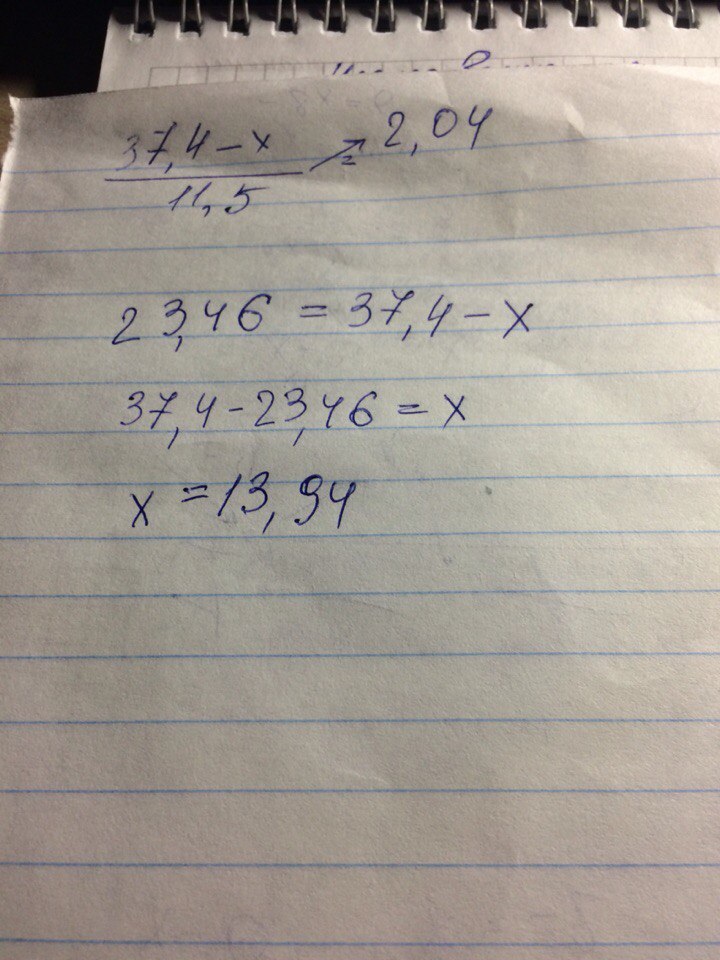 37,4 - x
11,5
= 2,04
23,46 = 37,4 - x
37,4 - 23,46 = x
x = 13,94